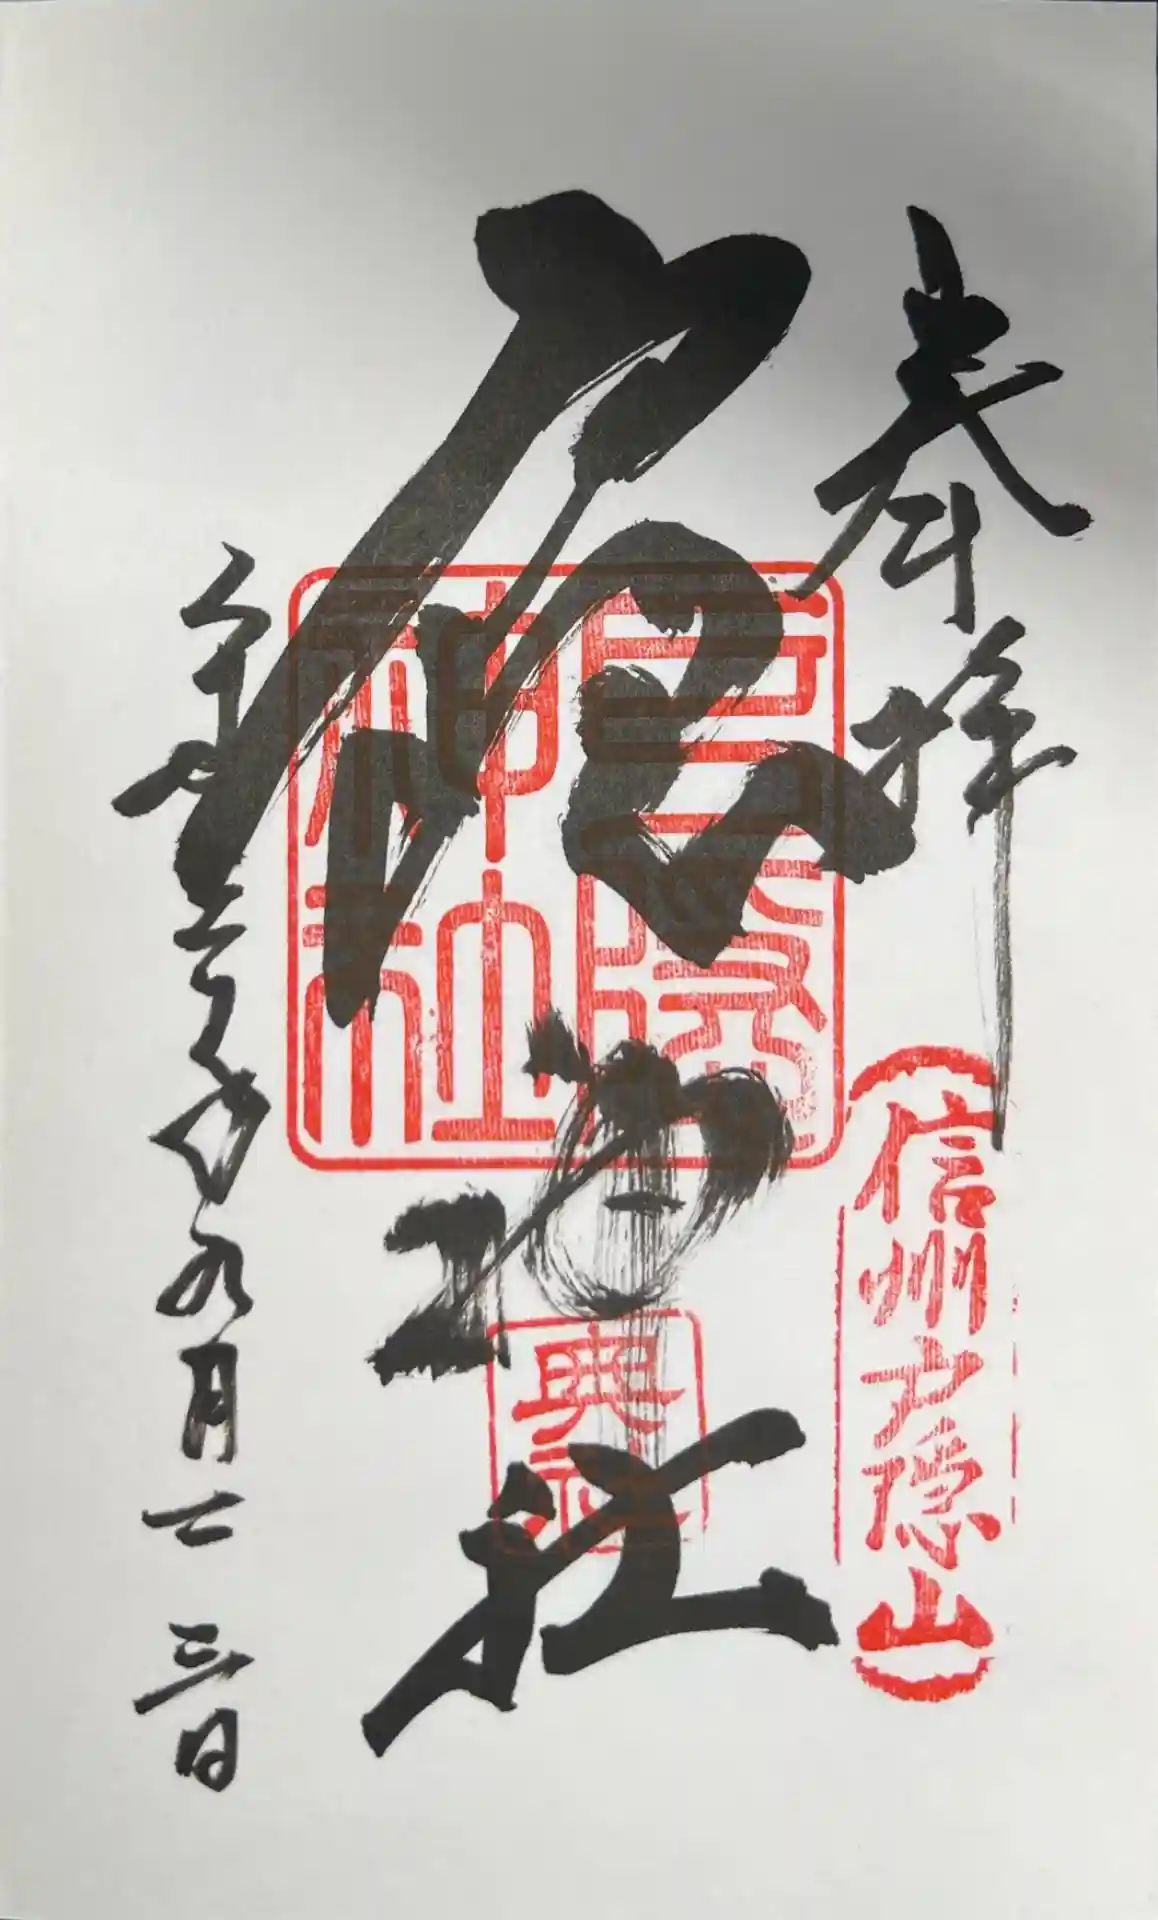 奉拝
信州戸隠山
戸隠神社
戸隠神社
奥社
令和 年九月廿三日